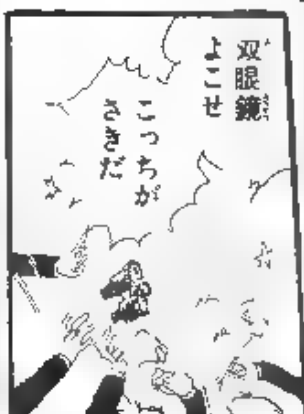 双眼鏡
よこせ
こっちが
さきだ